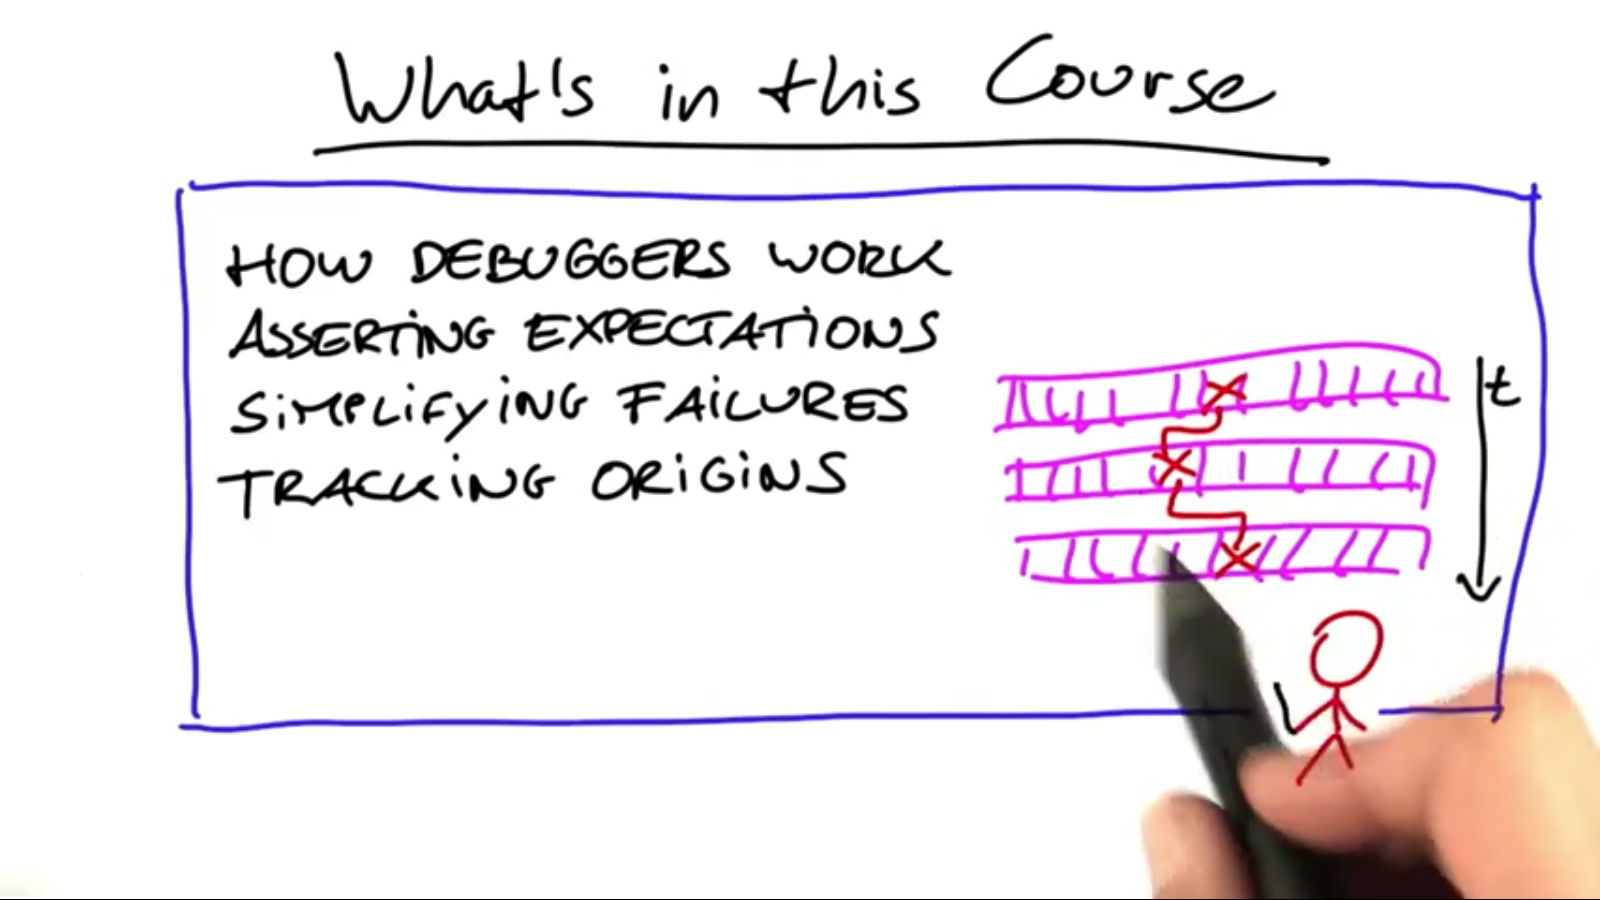 What's in this Course
HOW DEBUGGERS WORK
ASSERTING EXPECTATIONS
SIMPLIFYING FAILURES
TRACKING ORIGINS
t